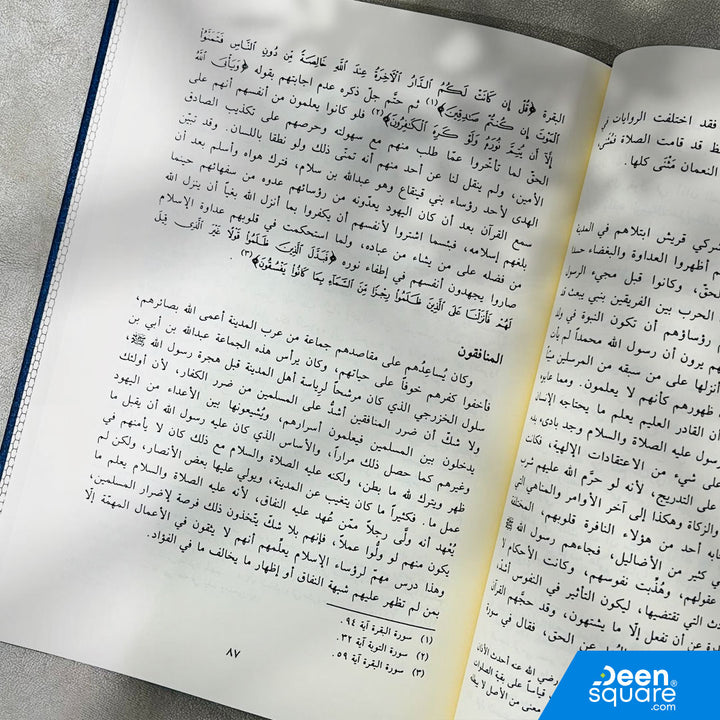 فقد اختلفت الروايات في
قد قامت الصلاة
النعمان مَثْنَى كلها.
شركي قريش ابتلاهم في المدينة
أظهروا العداوة والبغضاء
الحق، وكانوا قبل مجيء الرسول
الحرب بين الفريقين بنبي يبعث
رؤساؤهم أن تكون النبوة في
يرون أن رسول الله محمداً لم
أنزلها على من سبقه من المرسلين
ظهورهم كأنهم لا يعلمون. ومما
أن القادر العليم يعلم ما يحتاجه الإنسان
سول عليه الصلاة والسلام وجد
على شيء من الاعتقادات الإلهية،
على التدريج، لأنه لو حرَّم الله عليهم
والزكاة وهكذا إلى آخر الأوامر والمناهي التي
أحد من هؤلاء النافرة قلوبهم،
في كثير من الأضاليل، فجاءهم رسول الله ﷺ
عقولهم، وهُذِّبت نفوسهم، وكانت الأحكام لا
التي تقتضيها، ليكون التأثير في النفوس
أن تفعل إلّا ما يشتهون، وقد حجَّهم القرآن
عن الحق، فقال في سورة
رضي الله عنه
قياساً على بقية الصلوات
معنى من الأصل
البقرة ﴿قُلْ إِن كَانَتْ لَكُمُ الدَّارُ الْآخِرَةُ عِندَ اللَّهِ خَالِصَةً مِّن دُونِ النَّاسِ فَتَمَنَّوُا
الْمَوْتَ إِن كُنتُمْ صَادِقِينَ﴾(١) ثم حتَّم جلّ ذكره عدم اجابتهم بقوله ﴿وَيَأْبَى اللَّهُ
إِلَّا أَن يُتِمَّ نُورَهُ وَلَوْ كَرِهَ الْكَافِرُونَ﴾(٢) فلو كانوا يعلمون من أنفسهم أنهم على
الحقّ لما تأخّروا عمّا طلب منهم مع سهولته وحرصهم على تكذيب الصادق
الأمين، ولم ينقل لنا عن أحد منهم أنه تمنّى ذلك ولو نطقا باللسان. وقد تبيّن
الهدى لأحد رؤساء بني قينقاع وهو عبدالله بن سلام، فترك هواه وأسلم بعد أن
سمع القرآن بعد أن كان اليهود يعدّونه من رؤسائهم عدوه من سفهائهم حينما
بلغهم إسلامه، فبئسما اشتروا لأنفسهم أن يكفروا بما أنزل الله بغياً أن ينزل الله
من فضله على من يشاء من عباده، ولما استحكمت في قلوبهم عداوة الإسلام
صاروا يجهدون أنفسهم في إطفاء نوره ﴿فَبَدَّلَ الَّذِينَ ظَلَمُوا قَوْلًا غَيْرَ الَّذِي قِيلَ
لَهُمْ فَأَنزَلْنَا عَلَى الَّذِينَ ظَلَمُوا رِجْزًا مِّنَ السَّمَاءِ بِمَا كَانُوا يَفْسُقُونَ﴾(٣).
المنافقون
وكان يُساعدُهم على مقاصدهم جماعة من عرب المدينة أعمى الله بصائرهم،
فأخفوا كفرهم خوفاً على حياتهم، وكان يرأس هذه الجماعة عبدالله بن أبي بن
سلول الخزرجي الذي كان مرشحاً لرياسة أهل المدينة قبل هجرة رسول الله ﷺ،
ولا شكّ أن ضرر المنافقين أشدُّ على المسلمين من ضرر الكفار، لأن أولئك
يدخلون بين المسلمين فيعلمون أسرارهم، ويُشيعونها بين الأعداء من اليهود
وغيرهم كما حصل ذلك مراراً، والأساس الذي كان عليه رسول الله أن يقبل ما
ظهر ويترك لله ما بطن، ولكنه عليه الصلاة والسلام مع ذلك كان لا يأمنهم في
عمل ما. فكثيراً ما كان يتغيب عن المدينة، ويولي عليها بعض الأنصار، ولكن لم
يُعْهد أنه ولَّى رجلاً ممّن عُهد عليه النفاق، لأنه عليه الصلاة والسلام يعلم ما
يكون منهم لو ولُّوا عملاً، فإنهم بلا شكّ يتّخذون ذلك فرصة لإضرار المسلمين،
وهذا درس مهمّ لرؤساء الإسلام يعلِّمهم أنهم لا يثقون في الأعمال المهمّة إلّا
بمن لم تظهر عليهم شبهة النفاق أو إظهار ما يخالف ما في الفؤاد.
(١) سورة البقرة آية ٩٤.
(٢) سورة التوبة آية ٣٢.
(٣) سورة البقرة آية ٥٩.
٨٧
Deen
square®
.com